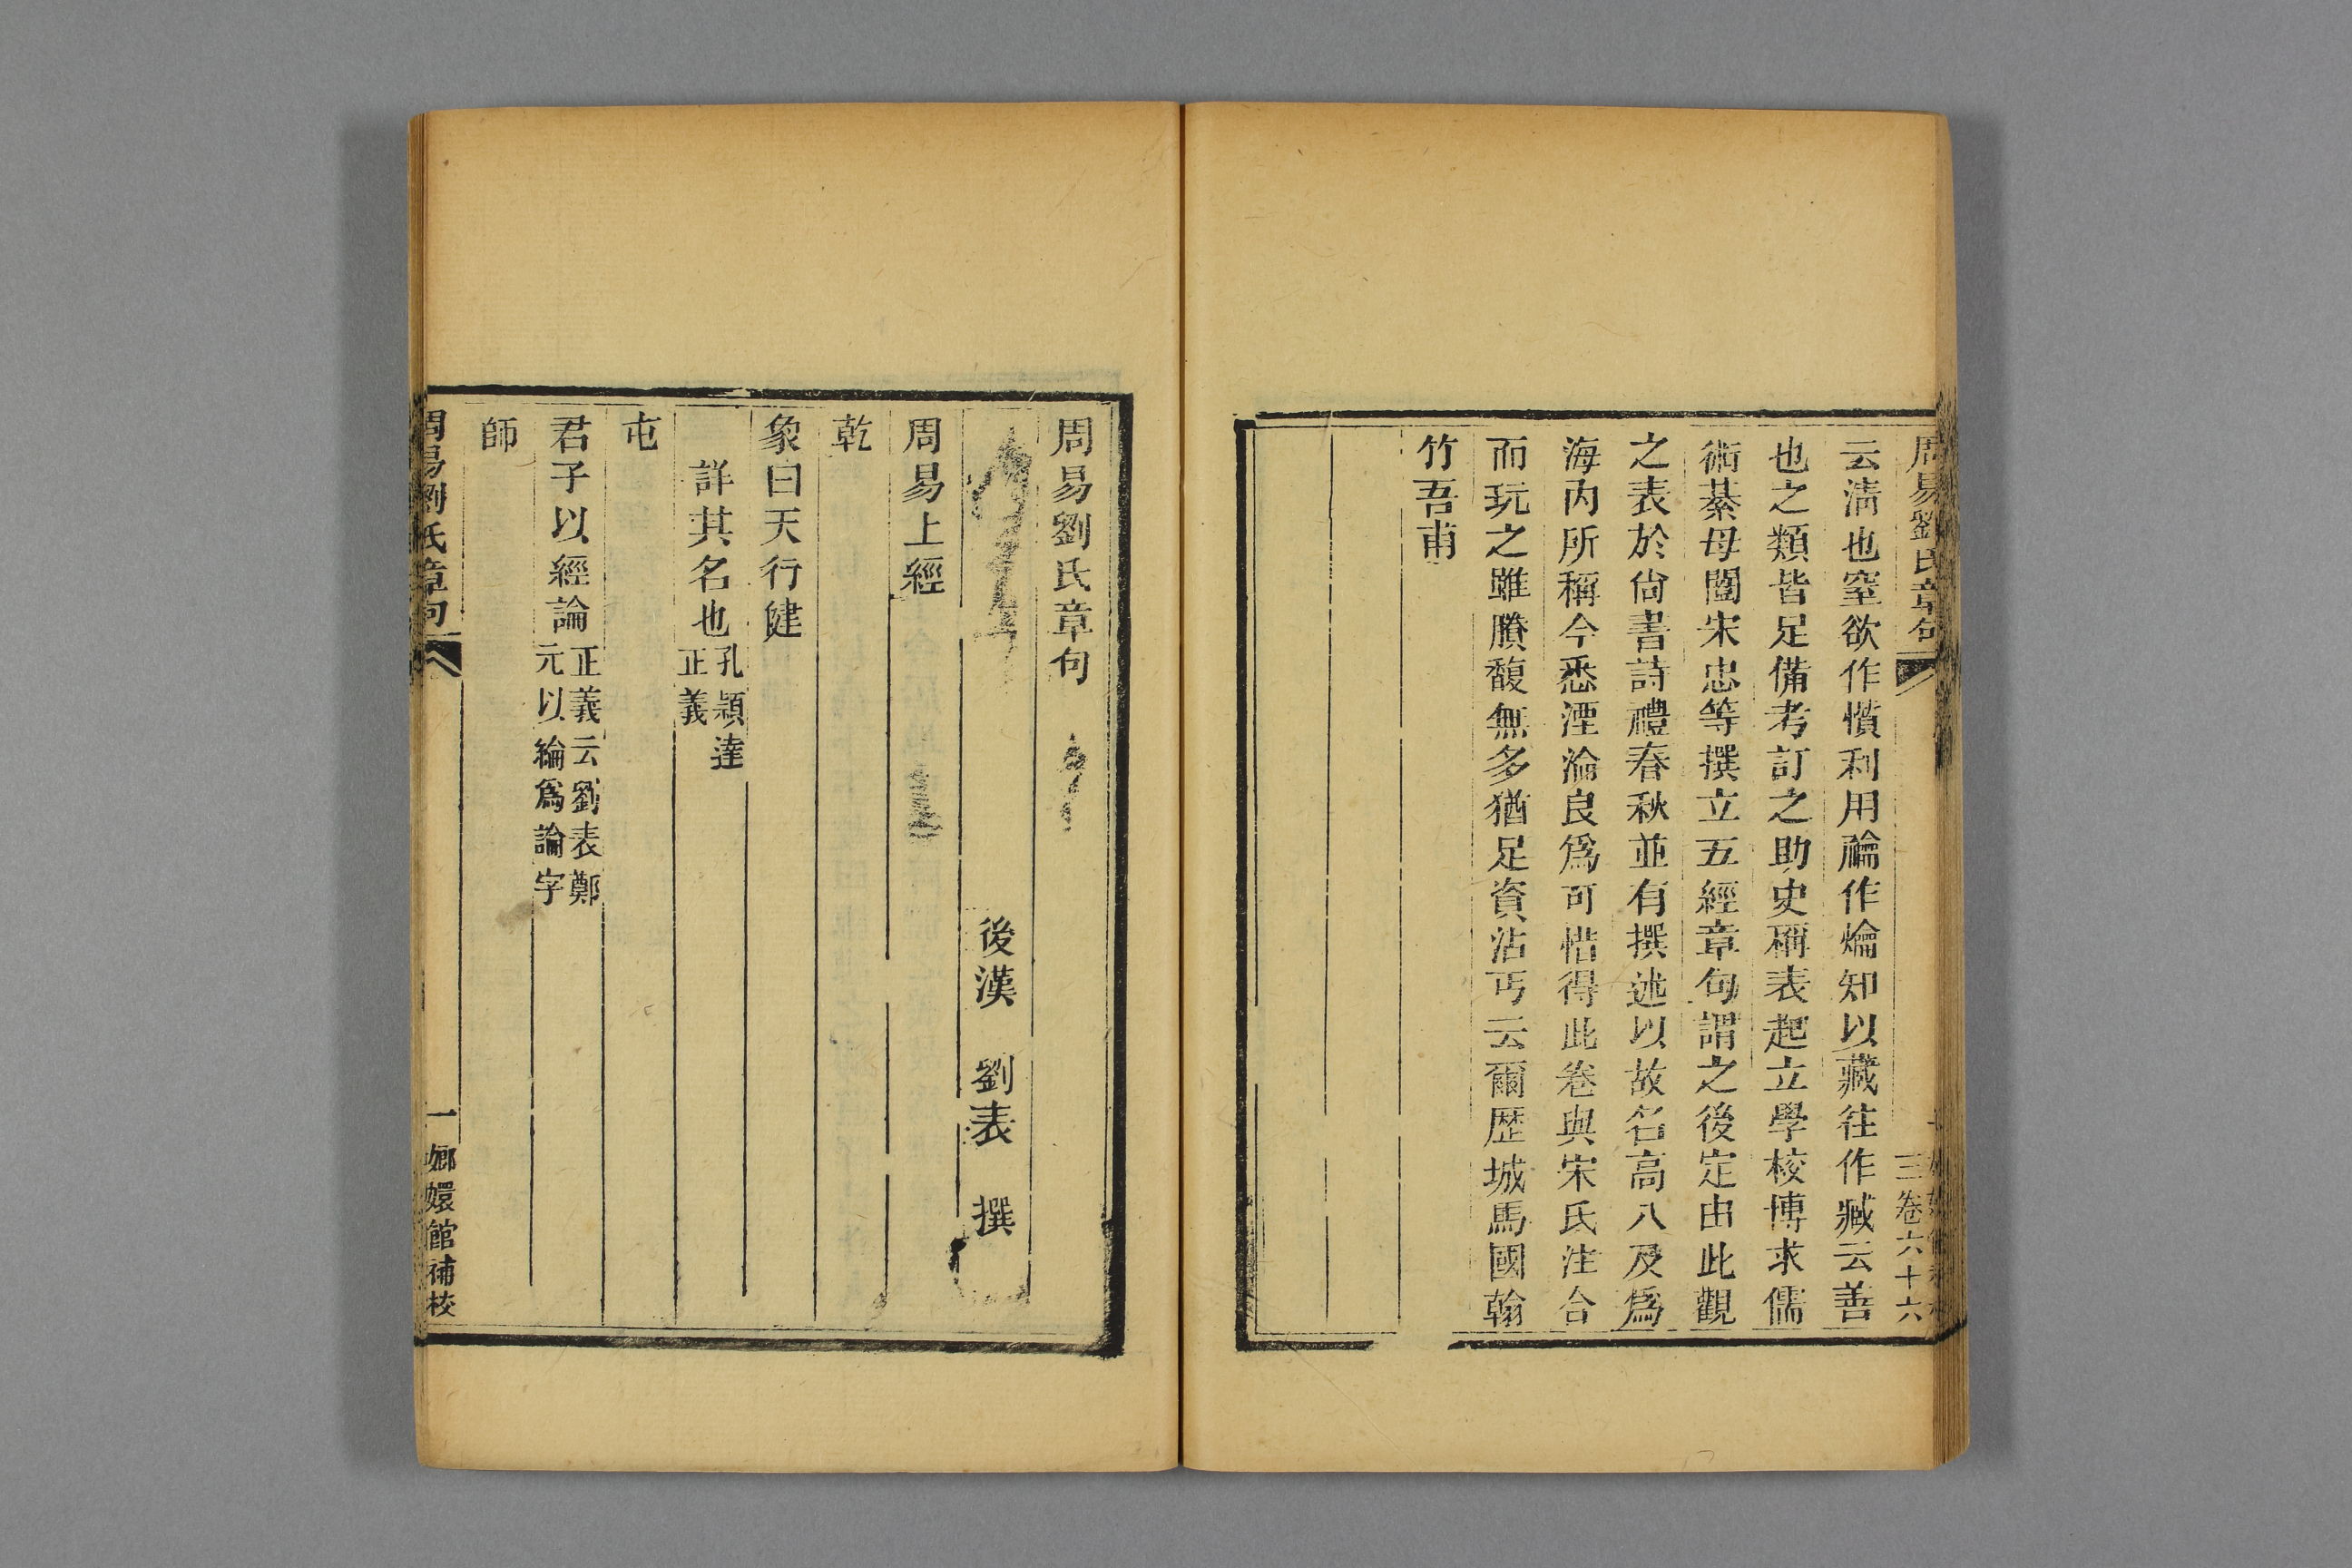 周易劉氏章句
三卷六十六
云淸也窒欲作懫利用禴作爚知以藏往作臧云善
也之類皆足備考訂之助史稱表起立學校博求儒
術綦母闓宋忠等撰立五經章句謂之後定由此觀
之表於尙書詩禮春秋並有撰述以故名高八及爲
海內所稱今悉湮淪良爲可惜得此卷與宋氏注合
而玩之雖賸馥無多猶足資沾丐云爾歷城馬國翰
竹吾甫
周易劉氏章句
後漢 劉表 撰
周易上經
乾
象曰天行健
詳其名也孔穎達
正義
屯
君子以經論正義云劉表鄭
元以綸爲論字
師
周易劉氏章句
一
嫏嬛館補校